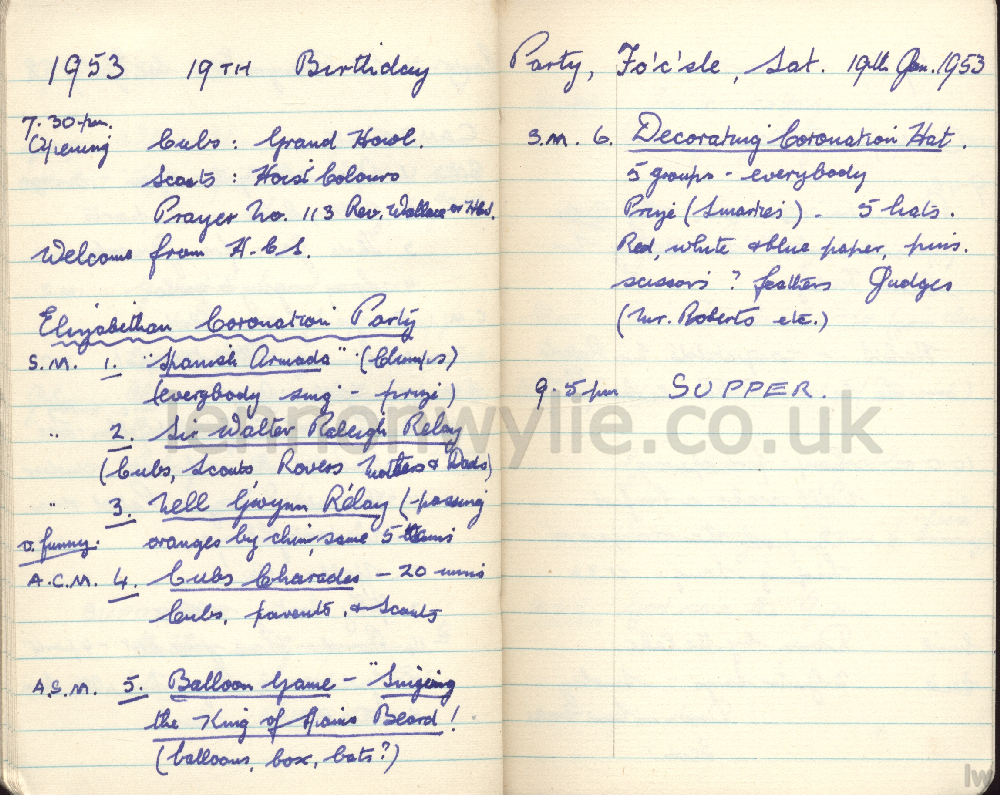 1953 19TH Birthday
7.30 pm.
Opening Cubs: Grand Howl.
Scouts: Hoist Colours
Prayer No. 113 Rev. Wallace or
Welcome from H.C.S.
Elizabethan Coronation Party
S.M. 1. "Spanish Armada" (Chumps)
(everybody sing - prize)
" 2. Sir Walter Raleigh Relay
(Cubs, Scouts, Rovers Mothers & Dads)
" 3. Nell Gwynn Relay (passing
v. funny. oranges by chin, same 5 teams
A.C.M. 4. Cubs Charades - 20 mins
Cubs, parents, & Scouts
A.S.M. 5. Balloon Game - "Singeing
the King of Spains Beard!
(balloons, box, bats?)
Party, Fo'c'sle, Sat. 19th Jan. 1953
S.M. 6. Decorating Coronation Hat.
5 groups - everybody
Prize (Smarties) - 5 hats.
Red, white & blue paper, pins.
scissors? feathers Judges
(Mr. Roberts etc.)
9.5 pm SUPPER.
lennonwylie.co.uk
lw